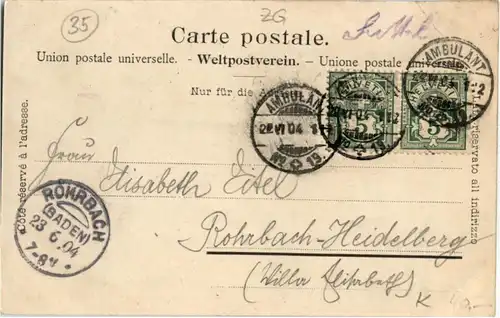 35
ZG
Carte postale.
Union postale universelle. - Weltpostverein. - Unione postale universale
Nur für die
Côte réservé à l'adresse.
AMBULANT
22 VI 04
No. 19.
HELVETIA
5
AMBULANT
HELVETIA
5
riservato all indirizzo
Frau
Elisabeth Eitel
Rohrbach-Heidelberg
(Villa Elisabeth)
ROHRBACH
(BADEN)
23 6.04
7-8 V
K